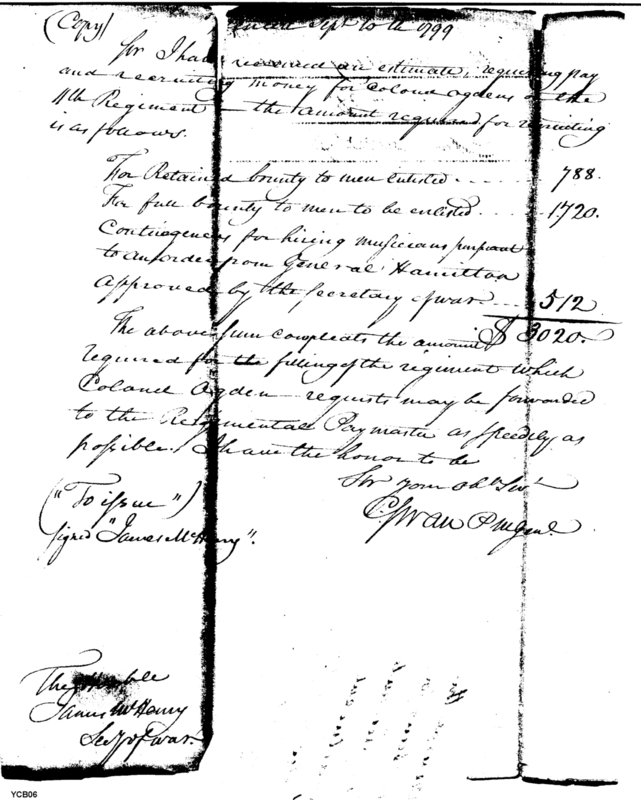 (Copy) Sept 10th 1799
Sir I have received an estimate, requesting pay
and recruiting money for Colonel Ogdens or the
11th Regiment the amount required for recruiting
is as follows.
For Retained bounty to men enlisted 788.
For full bounty to men to be enlisted 1720.
Contingences for hiring musicians pursuant
to an order from General Hamilton
approved by the Secretary of war 512
The above sum compleats the amount $ 3020.
required for the filling of the regiment which
Colonel Ogden requests may be forwarded
to the Regimental Paymaster as speedily as
possible. I have the honor to be
Sir your Obt Servt
("To issue")
CSwan P M Genl.
signed "James McHenry".
The Honble
James McHenry
Secy of war.
YCB06